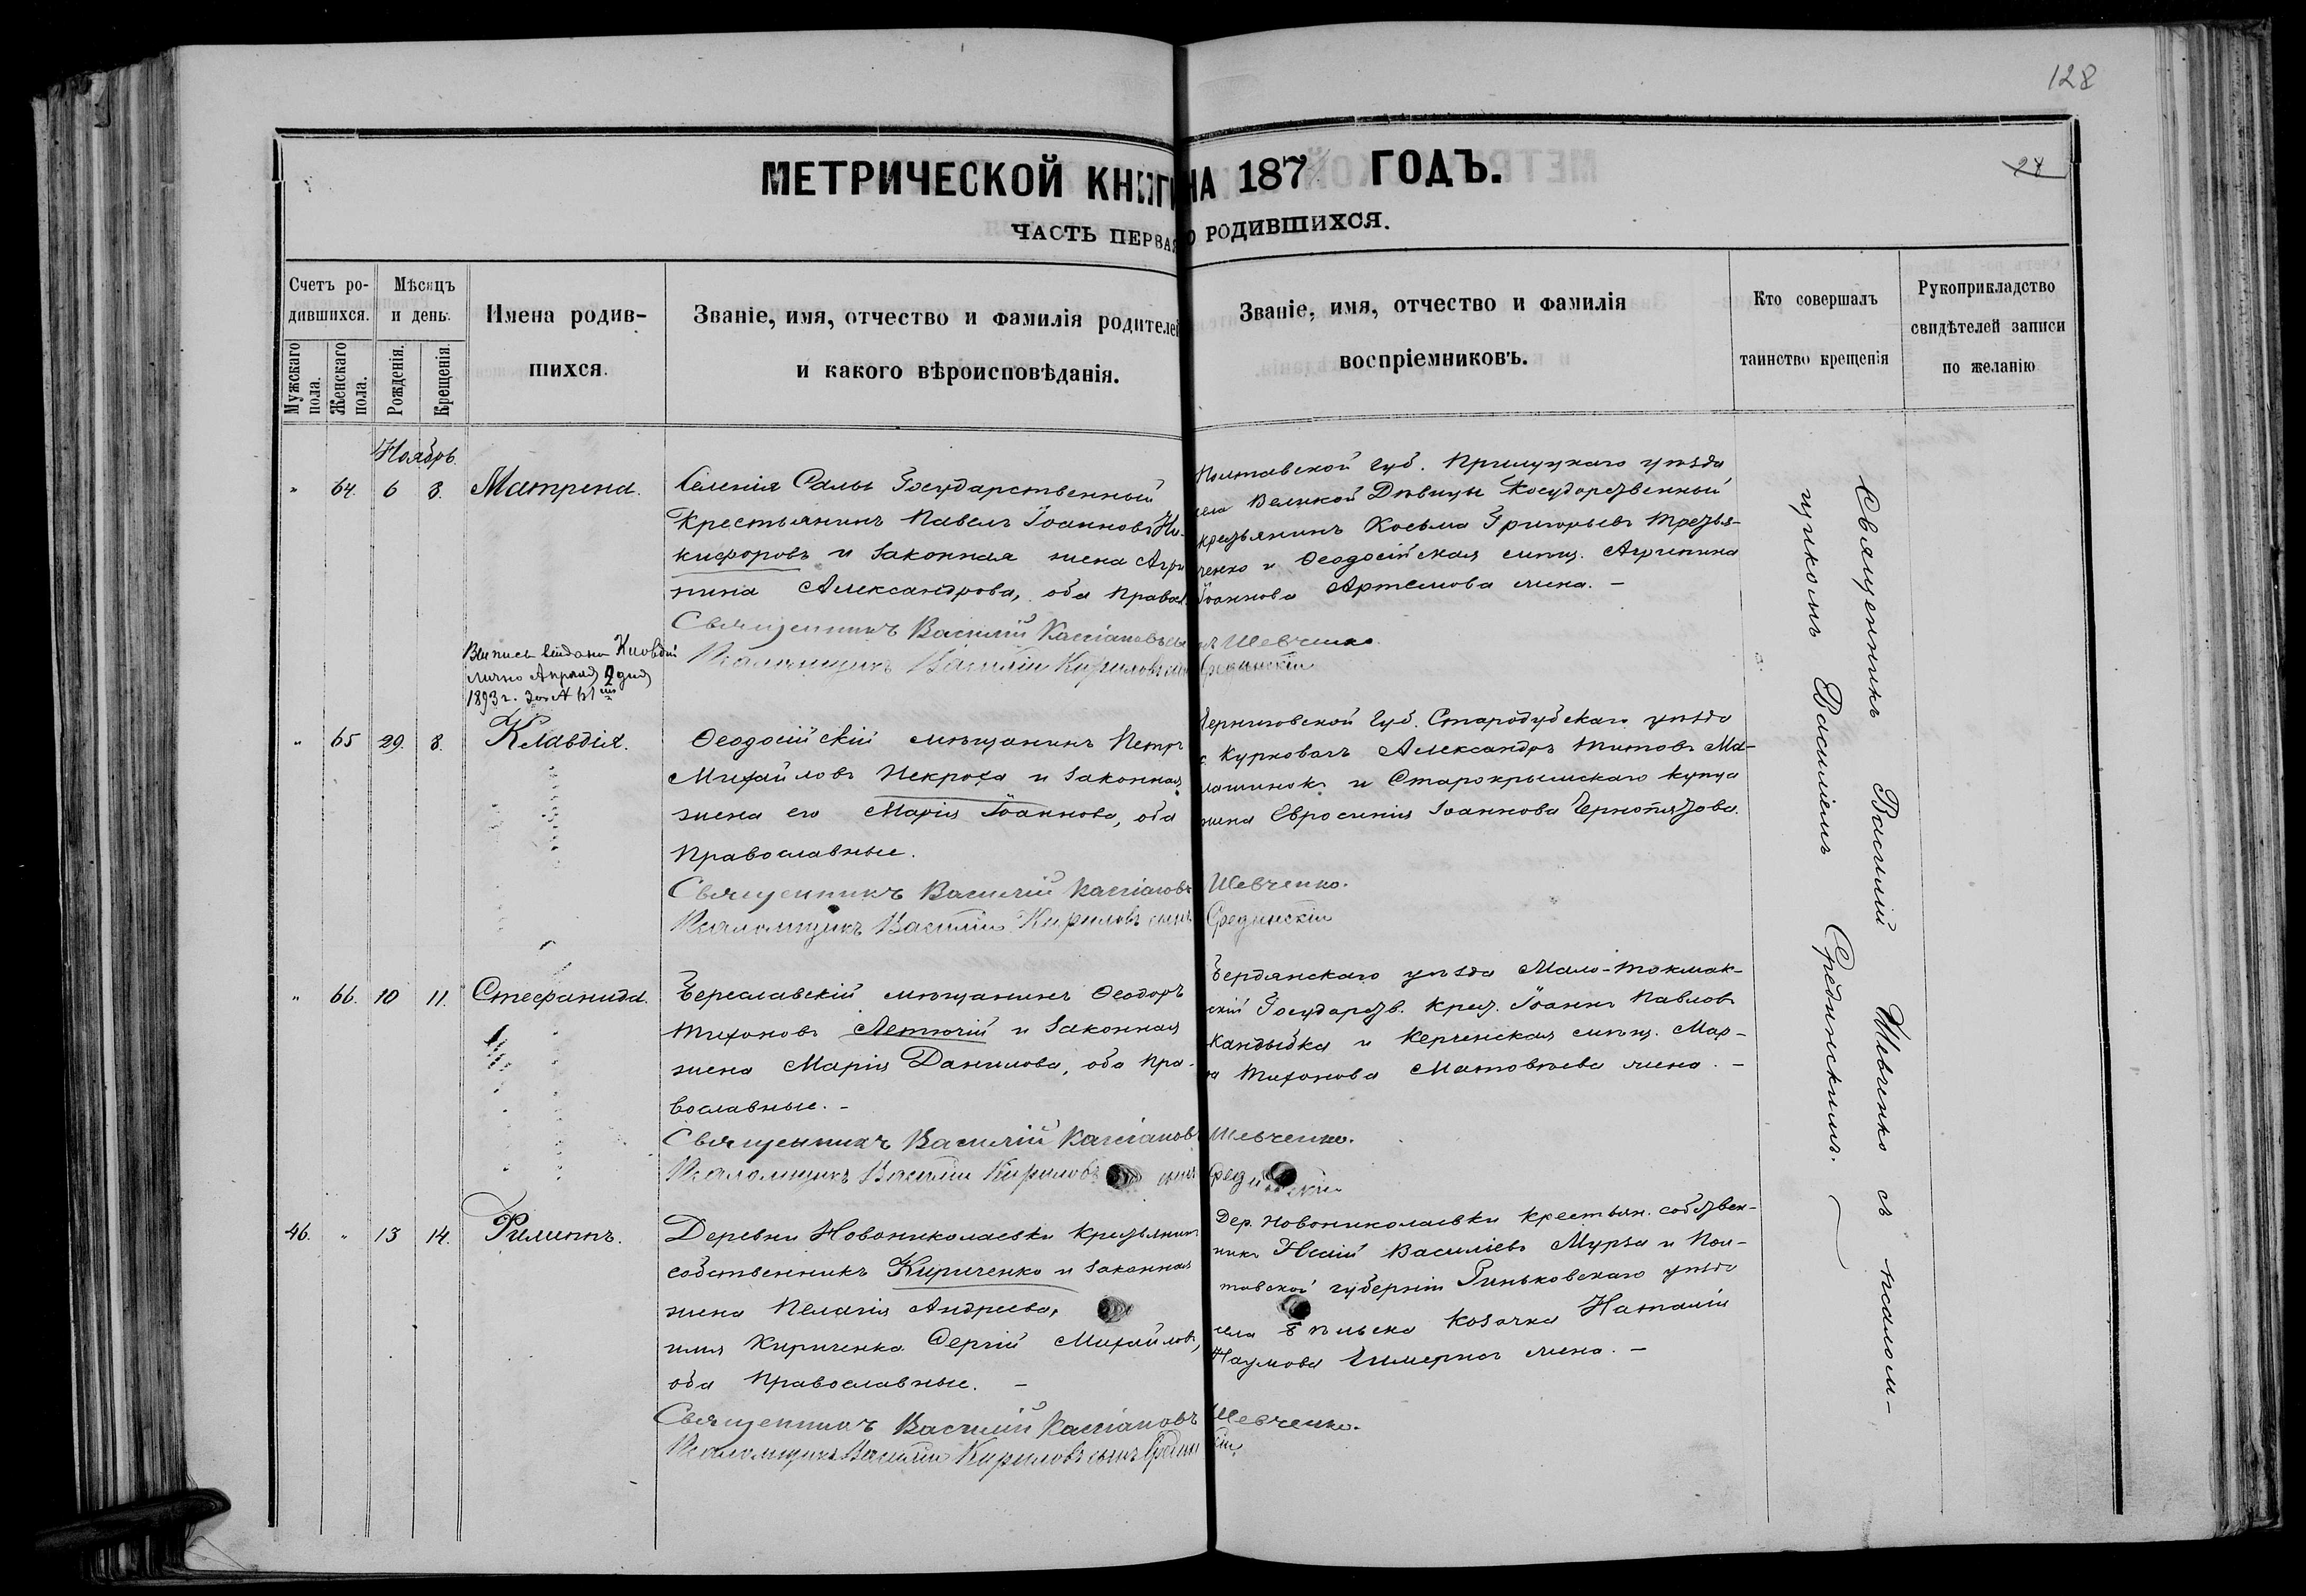 128
МЕТРИЧЕСКОЙ КНИГИ НА 187 ГОДЪ.
24
ЧАСТЬ ПЕРВАЯ О РОДИВШИХСЯ.
Счетъ ро-
дившихся.
Мужскаго пола.
Женскаго пола.
Мѣсяцъ
и день.
Рожденія.
Крещенія.
Имена родив-
шихся.
Званіе, имя, отчество и фамилія родителей
и какого вѣроисповѣданія.
Званіе, имя, отчество и фамилія
воспріемниковъ.
Кто совершалъ
таинство крещенія
Рукоприкладство
свидѣтелей записи
по желанію
Ноябрь.
" 64. 6 8. Матрена.
Селенія Салы Государственный
Крестьянинъ Павелъ Іоанновъ Ни-
кифоровъ и законная жена Агри
пина Александрова, оба Правосл.
Священникъ Василій Кассіановъ сынъ Шевченко.
Псаломщикъ Василій Кириловъ сынъ Срединскій
Полтавской Губ. Прилуцкаго уѣзда
села Великой Дѣвицы Государственный
крестьянинъ Косьма Григорьевъ Третья-
ченко и Ѳеодосійская мѣщ. Агрипина
Іоаннова Артемова жена. -
Выпись выдана Клавдіи
лично Апрѣля 2 дня
1893 г. за №
" 65 29. 8. Клавдія.
Ѳеодосійскій мѣщанинъ Петръ
Михайловъ Некроха и законная
жена его Марія Іоаннова, оба
Православные.
Священникъ Василій Кассіановъ Шевченко.
Псаломщикъ Василій Кириловъ сынъ Срединскій
Черниговской Губ. Стародубскаго уѣзда
с. Курковичъ Александръ Титовъ Ма-
лашинокъ и Старокрымскаго купца
жена Евросинія Іоаннова Чернопятова.
" 66. 10 11. Стефанида.
Береславскій мѣщанинъ Ѳеодоръ
Тихоновъ Летючій и законная
жена Марія Данилова, оба Пра-
вославные. -
Священникъ Василій Кассіановъ Шевченко.
Псаломщикъ Василій Кириловъ сынъ Срединскій
Бердянскаго уѣзда Мало-Токмак-
скій Государств. Крест. Іоаннъ Павловъ
Кандыбка и Керченская мѣщ. Мар-
ѳа Тихонова Матовѣева жена. -
46. " 13 14. Филиппъ.
Деревни Новониколаевки Крестьянинъ
собственникъ Кириченко и законная
жена Пелагія Андреева,
имя Кириченка Сергій Михайловъ,
оба Православные. -
Священникъ Василій Кассіановъ Шевченко.
Псаломщикъ Василій Кириловъ сынъ Срединскій
Дер. Новониколаевки Крестьян. собствен-
никъ Василіевъ Мурза и Пол-
тавской губерніи Зиньковскаго уѣзда
села Бѣльска Козачка Наталія
Наумова жена. -
Священникъ Василій Шевченко съ псалом-
щикомъ Василіемъ Срединскимъ.